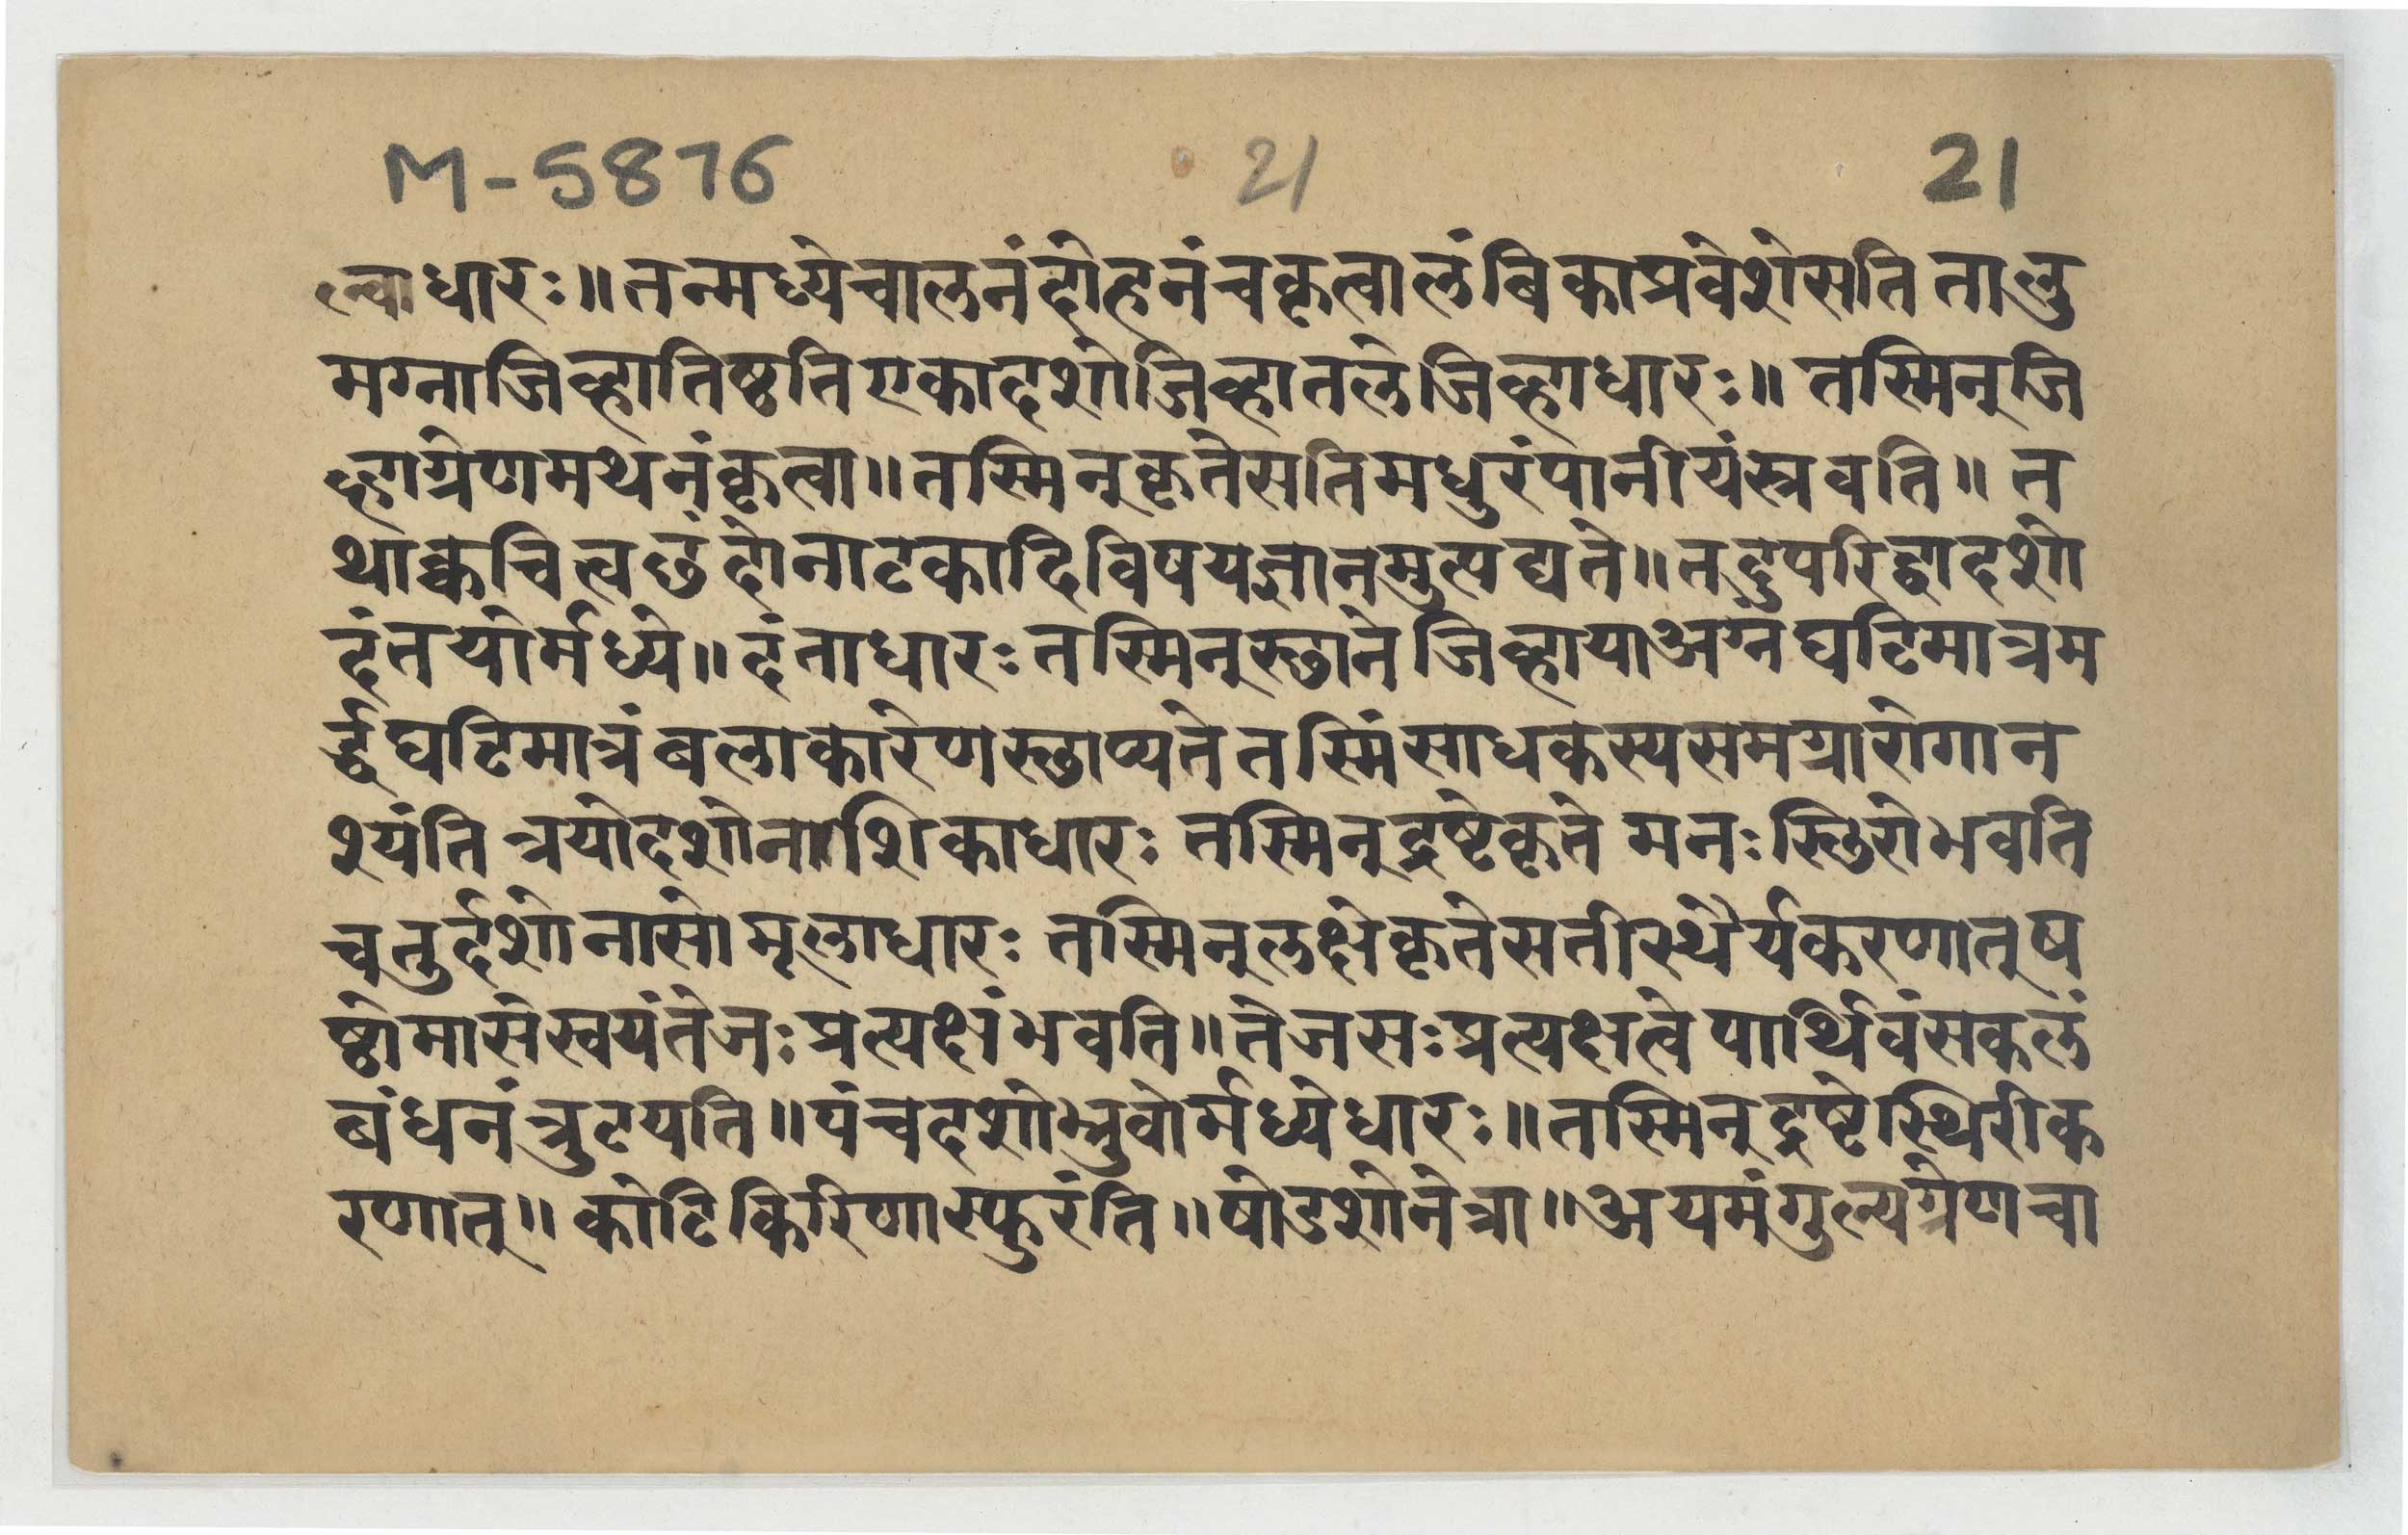 M-5876 21 21
ल्वाधारः॥तन्मध्येचालनंदोहनंचकृत्वालंबिकाप्रवेशेसति तालु
मग्नाजिव्हातिष्ठतिएकादशोजिव्हातलेजिव्हाधारः॥ तस्मिन्जि
व्हाग्रेणमथनंकृत्वा॥तस्मिन्कृतेसतिमधुरंपानीयंस्त्रवति॥ त
थाक्कचित्वछंदोनाटकादिविषयज्ञानमुत्पद्यते॥तदुपरिद्वादशो
दंतयोर्मध्ये॥दंताधारः तस्मिन्स्छाने जिव्हायाअग्नं घटिमात्रम
र्द्धघटिमात्रंबलाकारेणस्छाप्यते तस्मिंसाधकस्यसमग्रारोगान
श्यंति त्रयोदशोनाशिकाधारः तस्मिन्द्रष्टेकृते मनःस्छिरोभवति
चतुर्दशोनासोमृलाधारः तस्मिन्लक्षेकृतेसतीस्थैर्यकरणात्ष
ष्ठोमासेस्वयंतेजःप्रत्यक्षंभवति॥तेजसःप्रत्यक्षत्वे पार्थिवंसकलं
बंधनंत्रुटयति॥पंचदशोभ्रुवोर्मध्येधारः॥तस्मिन्द्रष्टेस्थिरीक
रणात्॥ कोटिकिरिणास्फुरंति॥षोडशोनेत्रा॥अयमंगुल्यग्रेणचा